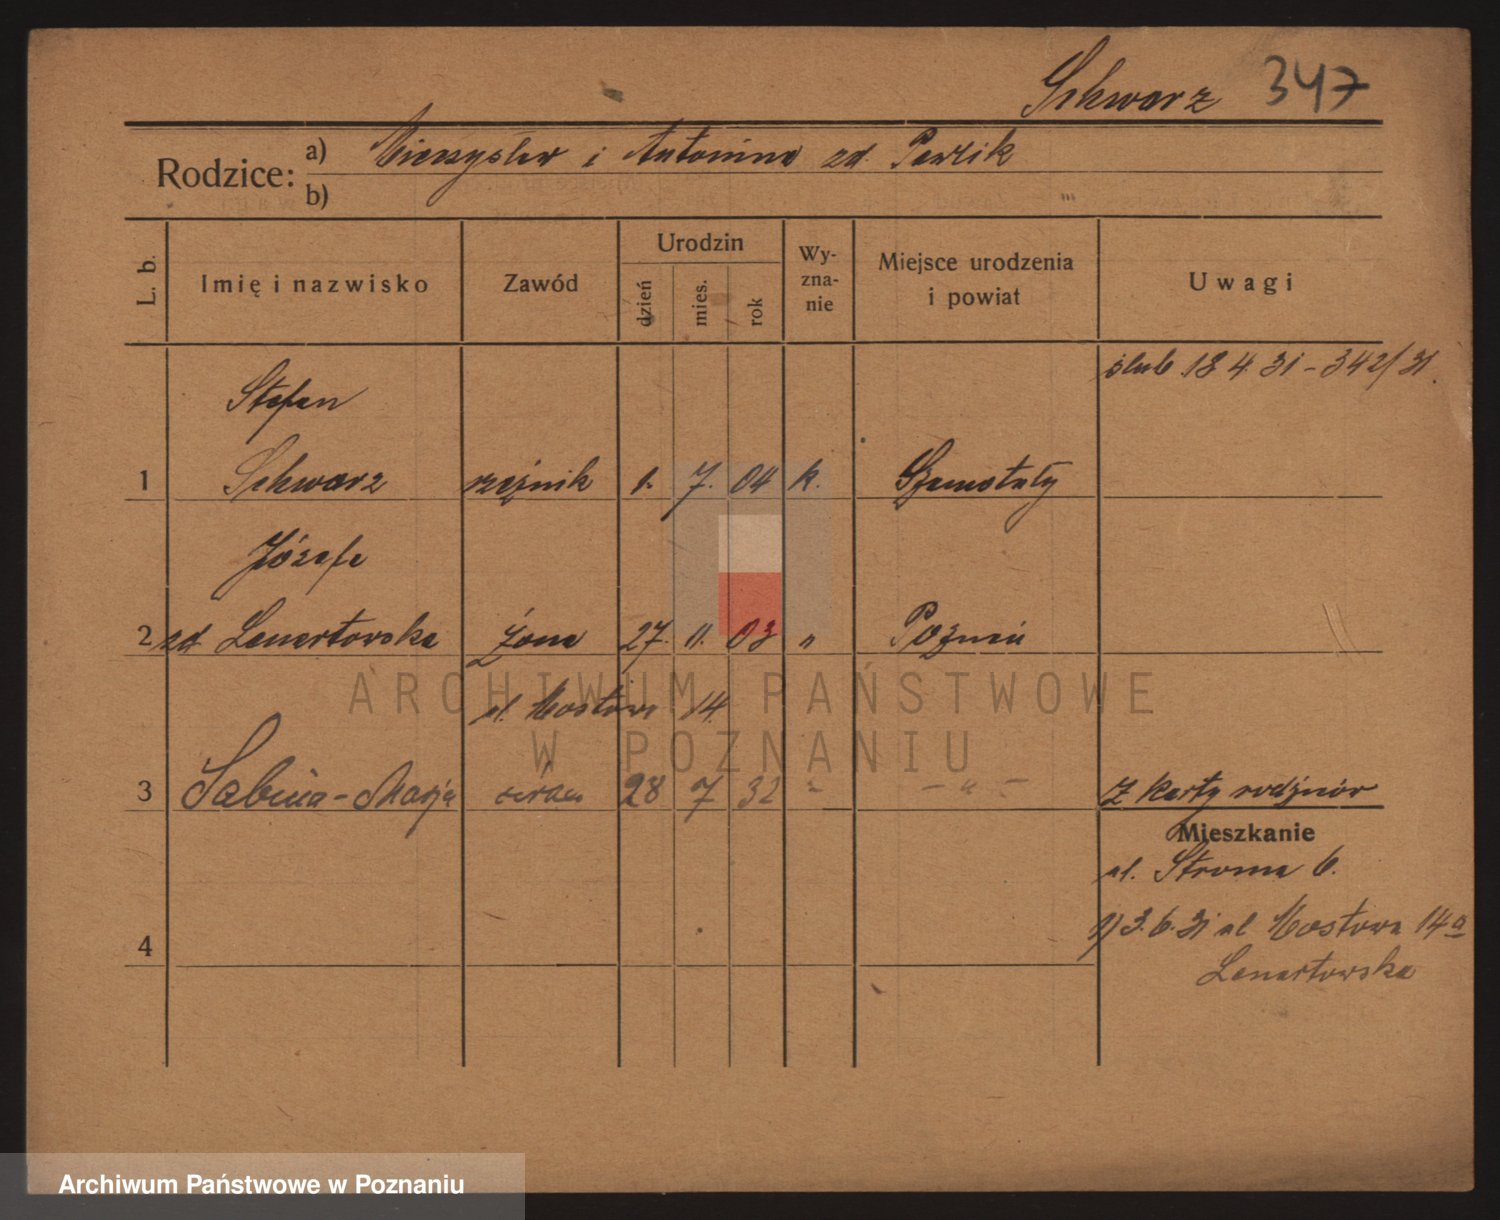 Schwarz 347
Rodzice: a) Mieczysław i Antonina zd. Pawlik
b) "
L. b. Imię i nazwisko Zawód Urodzin dzień mies. rok Wy-zna-nie Miejsce urodzenia i powiat Uwagi
ślub 18 4. 31 - 342/31.
Stefan
1 Schwarz rzeźnik 1. 7. 04 k. Szamotuły
Józefa
2 zd. Lenartowska żona 27. 11. 03 " Poznań
ul. Mostowa 14.
3 Sabina-Marja córka 28 7 32 " - " - z karty rodziców
Mieszkanie
ul. Stroma 6.
1) 3.6.31 ul Mostowa 14a
4
Lenartowska
ARCHIWUM PAŃSTWOWE
W POZNANIU
Archiwum Państwowe w Poznaniu